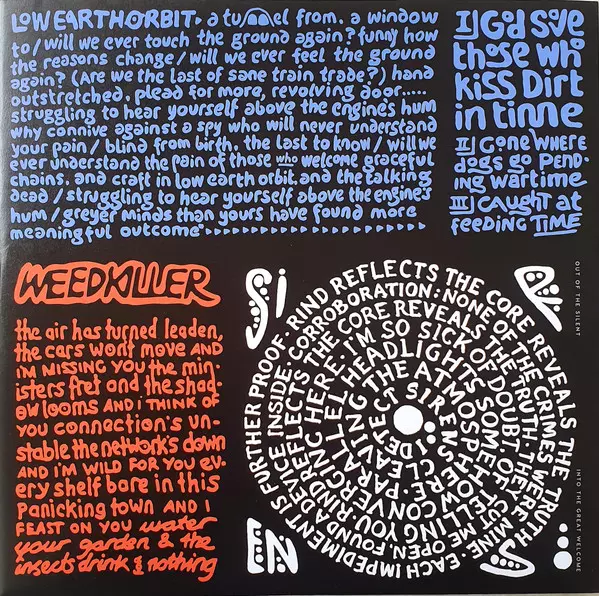 LOW EARTH ORBIT. a tunnel from. a window
to / will we ever touch the ground again? funny how
the reasons change / will we ever feel the ground
again? (Are we the last of sane train trade?) hand
outstretched. plead for more, revolving door.....
struggling to hear yourself above the engine's hum
why connive against a spy who will never understand
your pain / blind from birth. the last to know / will we
ever understand the pain of those who welcome graceful
chains. and craft in low earth orbit. and the talking
dead / struggling to hear yourself above the engine's
hum / greyer minds than yours have found more
meaningful outcome
I) God save
those who
kiss Dirt
in time
II) Gone where
dogs go pend-
ing wartime
III) Caught at
feeding TIME
WEEDKILLER
the air has turned leaden,
the cars won't move AND
I'm MISSING YOU the min-
isters fret and the shad-
ow looms AND I THINK OF
YOU connection's un-
stable the network's down
AND I'M WILD FOR YOU ev-
ery shelf bare in this
panicking town AND I
FEAST ON YOU water
your garden & the
insects drink & nothing
I DETECT SIRENS CLEAVING THE ATMOSPHERE. PARALLEL HEADLIGHTS SOMEHOW CONVERGING HERE. I'M SO SICK OF DOUBT. OF TELLING YOU. RIND REFLECTS THE CORE REVEALS THE TRUTH. THEY CUT ME OPEN. FOUND A DEVICE INSIDE. CORROBORATION: NONE OF THE CRIMES WERE MINE. EACH IMPEDIMENT IS FURTHER PROOF. RIND REFLECTS THE CORE REVEALS THE TRUTH
OUT OF THE SILENT
INTO THE GREAT WELCOME